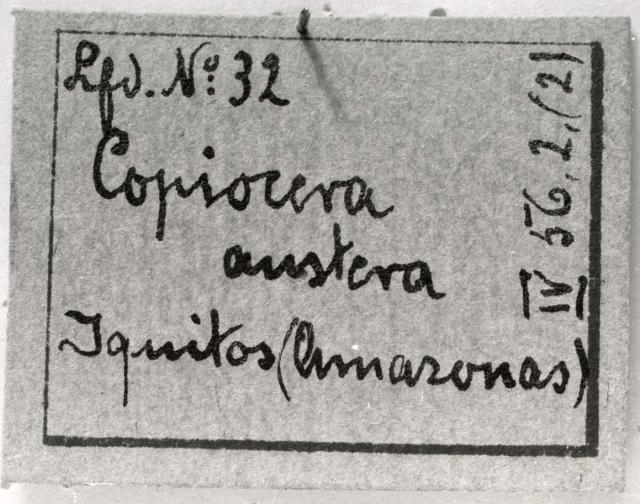 Lfd. No. 32
Copiocera
austera
Iquitos (Amazonas)
IV 56, 2, (2)